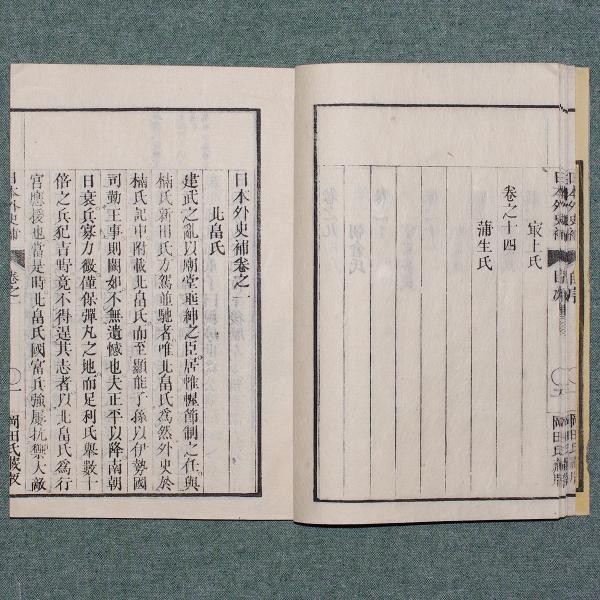 最上氏
卷之十四
蒲生氏
日本外史補卷之一
北畠氏
建武之亂以廟堂垂紳之臣居帷幄節制之任與
楠氏新田氏方駕並馳者唯北畠氏爲然外史於
楠氏記中附載北畠氏而至顯能子孫以伊勢國
司勤王事則闕如不無遺憾也夫正平以降南朝
日衰兵寡力微僅保彈丸之地而足利氏擧數十
倍之兵犯吉野竟不得逞其志者以北畠氏爲行
宮應援也當是時北畠氏國富兵強屢抗禦大敵
日本外史補
卷之一
一
岡田氏藏板
日本外史補
目次
岡田氏藏板